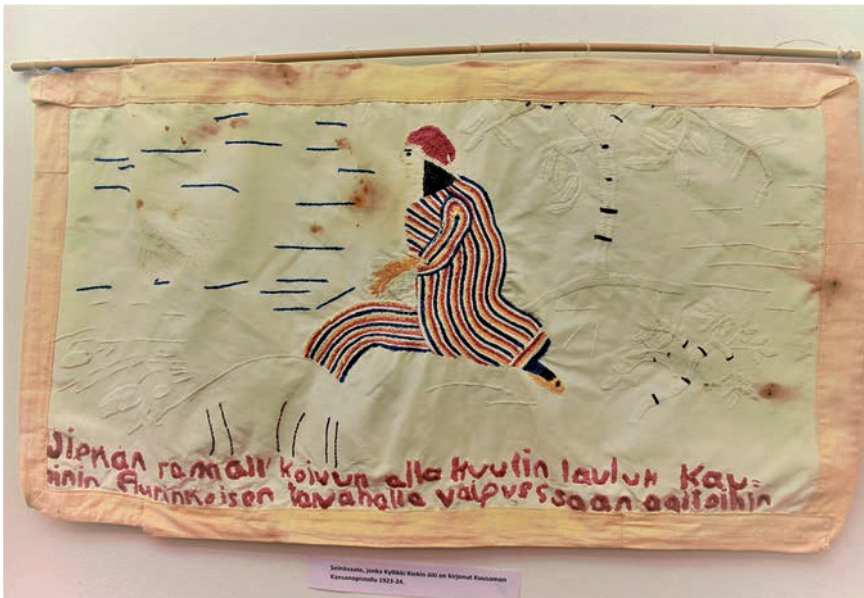 Vienan rannall' koivun alla kuulin laulun kau=
niin Aurinkoisen taivahalla vaipuessaan aaltoihin
Seinävaate, jonka Kyllikki Kiekin äiti on kirjonut Kuusamon
Kansanopistolla 1923-24.